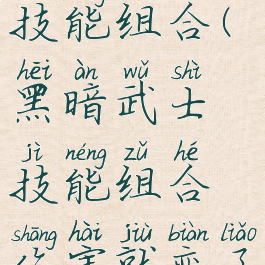 技能组合(
hēi àn wǔ shì
黑暗武士
jì néng zǔ hé
技能组合
shāng hài jiù biàn liǎo
伤害就变了